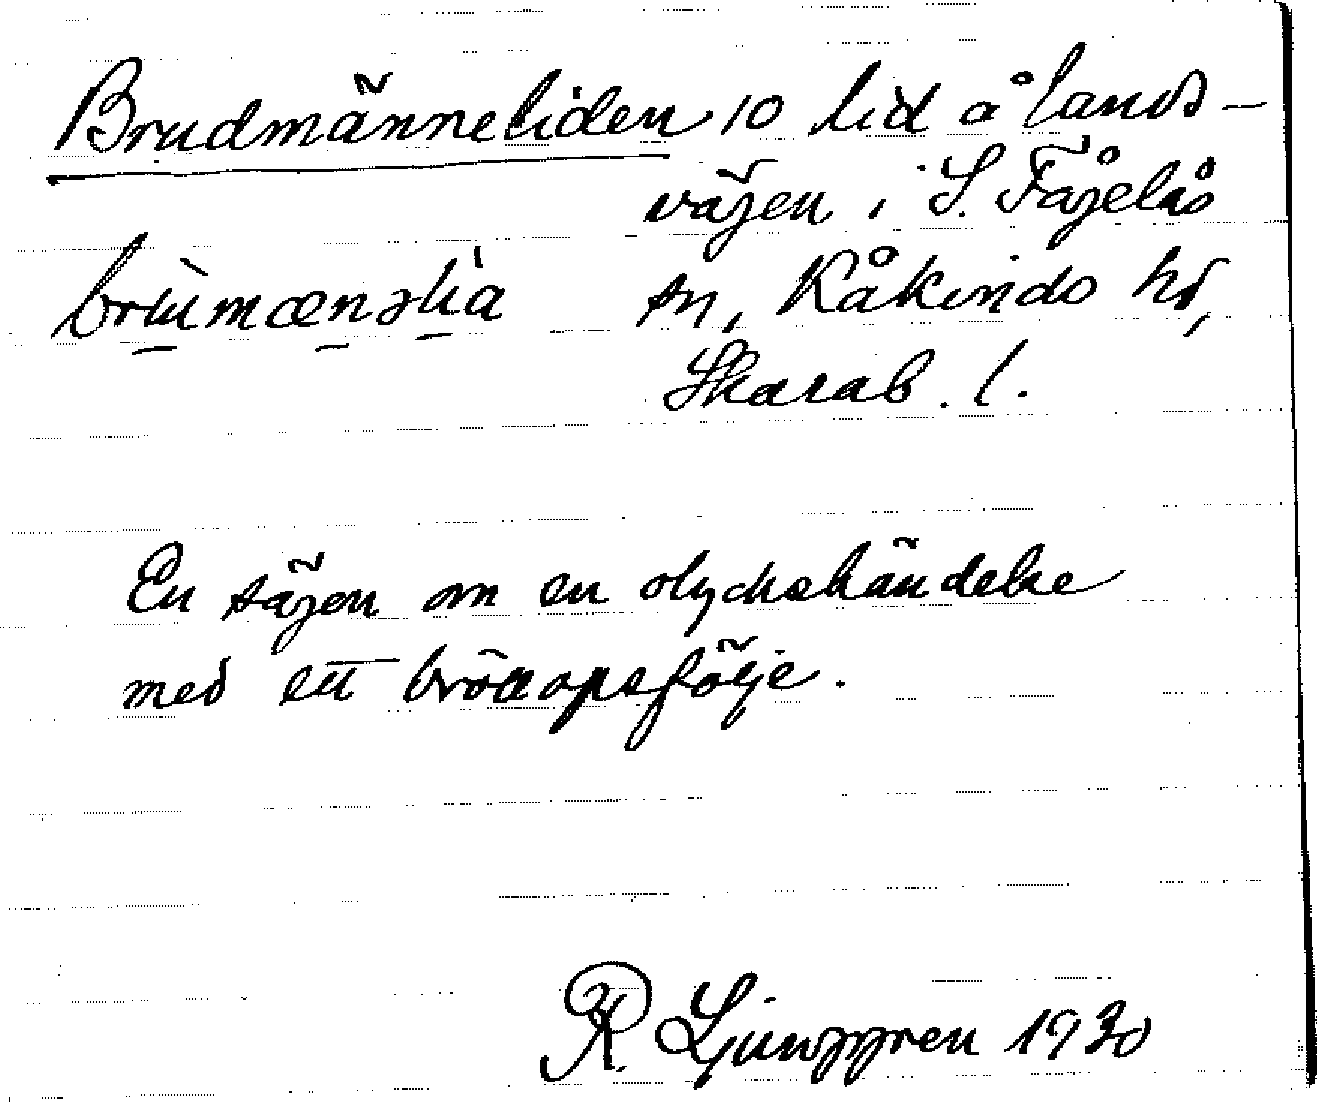 Brudmänneliden 10 lid å lands-
vägen i S. Fågelås
brùmænəlìa sn, Kåkinds hd,
Skarab. l.
En sägen om en olyckshändelse
med ett bröllopsfölje.
R Ljunggren 1930